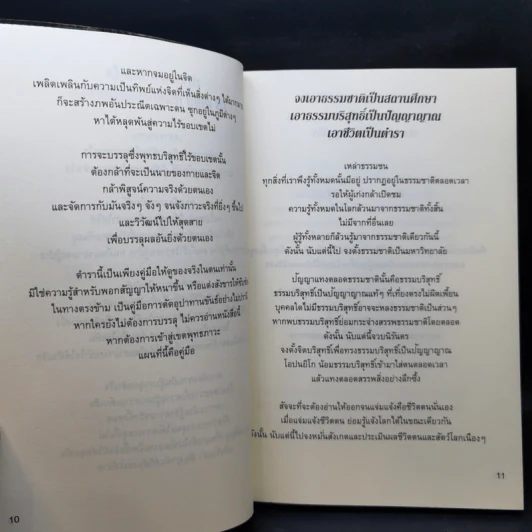 และหากจมอยู่ในจิต
เพลิดเพลินกับความเป็นทิพย์แห่งจิตที่เห็นสิ่งต่างๆ ได้มากมาย
ก็จะสร้างภพอันประณีตเฉพาะตน ซุกอยู่ในภูมิต่างๆ
หาได้หลุดพ้นสู่ความไร้ขอบเขตไม่
การจะบรรลุซึ่งพุทธบริสุทธิ์ไร้ขอบเขตนั้น
ต้องกล้าที่จะเป็นนายของกายและจิต
กล้าพิสูจน์ความจริงด้วยตนเอง
และจัดการกับมันจริงๆ จังๆ จนจังภาวะจริงที่ยิ่งๆ ขึ้นไป
และวิวัฒน์ไปให้สุดสาย
เพื่อบรรลุผลอันยิ่งด้วยตนเอง
ตำรานี้เป็นเพียงคู่มือให้ดูของจริงในตนเท่านั้น
มิใช่ความรู้สำหรับพอกสัญญาให้หนาขึ้น หรือแต่งสังขารให้
ในทางตรงข้าม เป็นคู่มือการตัดอุปาทานขันธ์อย่าง
หากใครยังไม่ต้องการบรรลุ ไม่ควรอ่านหนังสือนี้
หากต้องการเข้าสู่เขตพุทธภาวะ
แผนที่นี้คือคู่มือ
10
จงเอาธรรมชาติเป็นสถานศึกษา
เอาธรรมบริสุทธิ์เป็นปัญญาญาณ
เอาชีวิตเป็นตำรา
เหล่าธรรมชน
ทุกสิ่งที่เราพึงรู้ทั้งหมดนั้นมีอยู่ ปรากฏอยู่ในธรรมชาติตลอดเวลา
รอให้ผู้เก่งกล้าเปิดชม
ความรู้ทั้งหมดในโลกล้วนมาจากธรรมชาติทั้งสิ้น
ไม่มีจากที่อื่นเลย
ผู้รู้ทั้งหลายก็ล้วนรู้มาจากธรรมชาติเดียวกันนี้
ดังนั้น นับแต่นี้ไป จงตั้งธรรมชาติเป็นมหาวิทยาลัย
ปัญญาแทงตลอดธรรมชาตินั้นคือธรรมบริสุทธิ์
ธรรมบริสุทธิ์เป็นปัญญาญาณแท้ๆ ที่เที่ยงตรงไม่ผิดเพี้ยน
บุคคลใดไม่มีธรรมบริสุทธิ์อาจจะหลงธรรมชาติเป็นส่วนๆ
หากพบธรรมบริสุทธิ์ย่อมกระจ่างสรรพธรรมชาติโดยตลอด
ดังนั้น นับแต่นี้จวบนิรันดร
จงตั้งจิตบริสุทธิ์เพื่อทรงธรรมบริสุทธิ์เป็นปัญญาญาณ
โอปนยิโก น้อมธรรมบริสุทธิ์เข้ามาใส่ตนตลอดเวลา
แล้วแทงตลอดสรรพสิ่งอย่างลึกซึ้ง
สัจจะที่จะต้องอ่านให้ออกจนแจ่มแจ้งคือชีวิตตนนั่นเอง
เมื่อแจ่มแจ้งชีวิตตน ย่อมรู้แจ้งโลกได้ในขณะเดียวกัน
ดังนั้น นับแต่นี้ไปจงหมั่นสังเกตและประเมินผลชีวิตตนและสัตว์โลกเนืองๆ
11